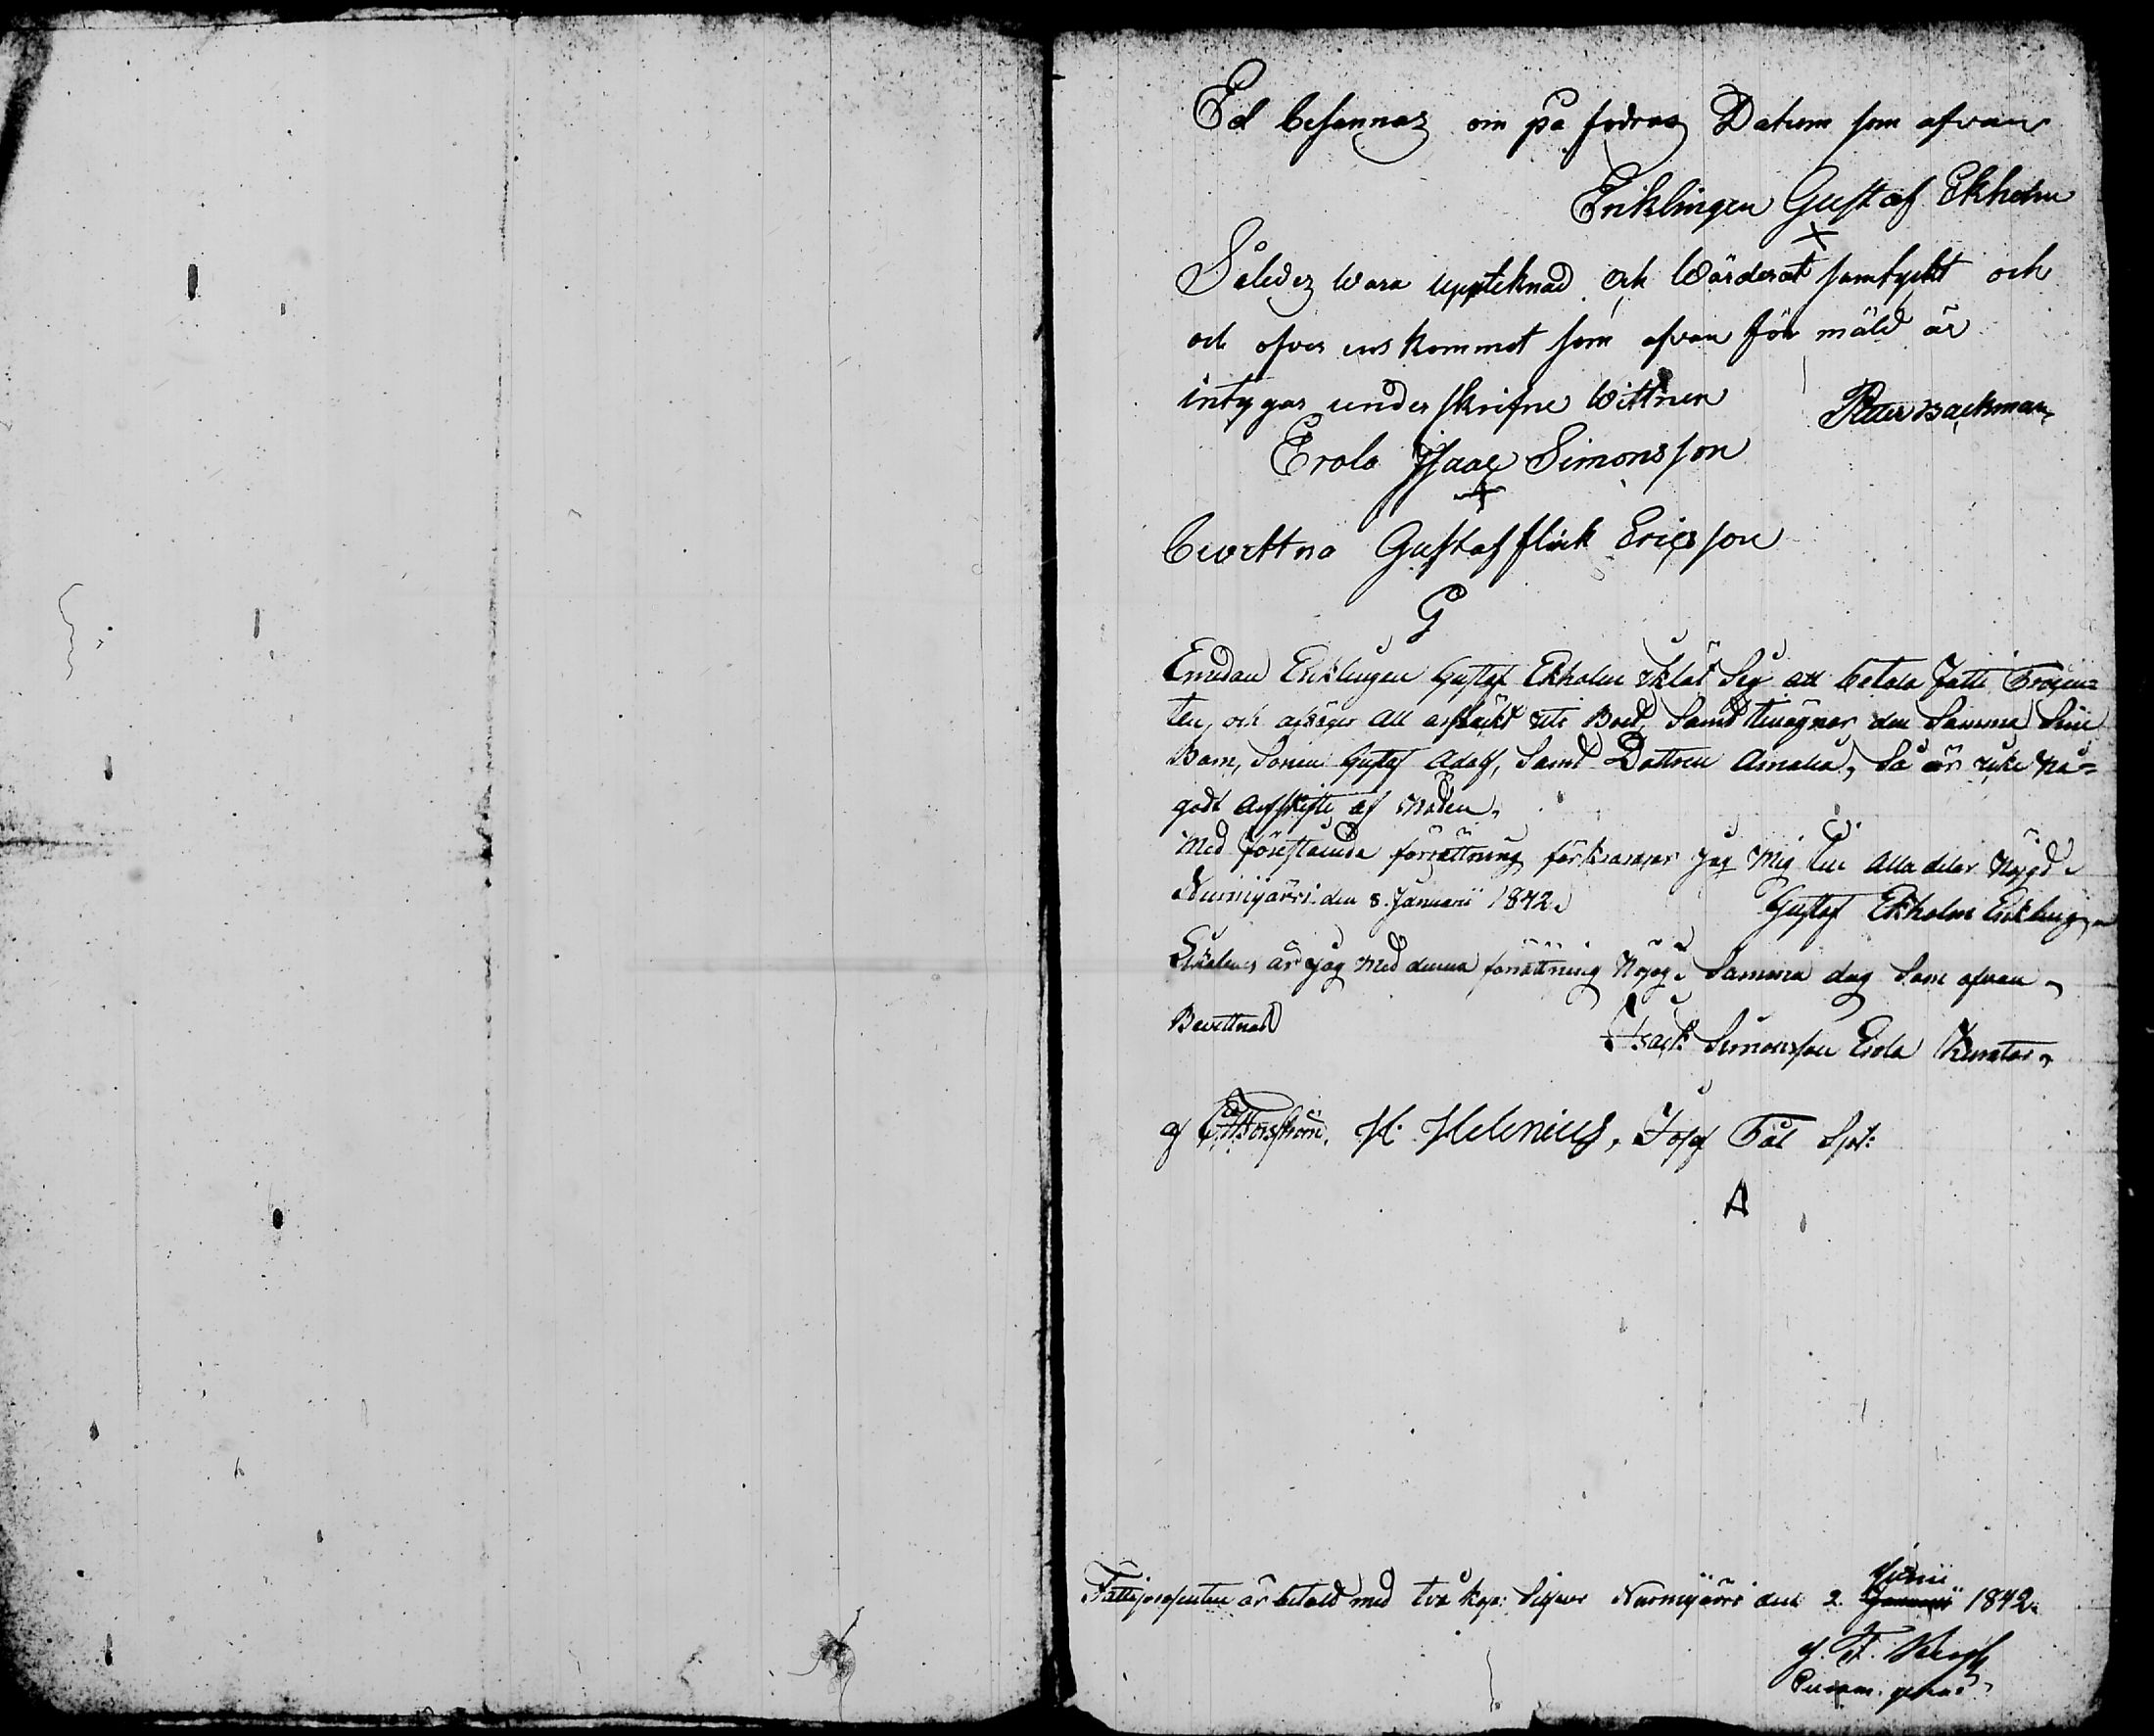 Ed besannas om på fodras Datum som ofvan
Enklingen Gustaf Ekholm
X
Således Vara uppteknad och Värderat samtykt och
och ofver ens kommet som ofvan för mäld är
intygar under skrifne Vittnen Peter Backman
Erola Isaac Simonsson
+
bevittna Gustaf flink Ericsson
G
Emedan Enklingen Gustaf Ekholm utlåt Sig att betala fatti Procen=
ten, och afsäger all arfsäkt uti Boet, Samt tilägnar den Samma Sine
Barn, Sonen Gustaf Adolf, Samt Dottren Amalia, Så är icke nå=
godt Arfskifte af Nöden.
Med föreståennde förrättning förklarar jag Mig till Alla delar Nöjgd
Nurmijärvi den 8. Januarii 1842. Gustaf Ekholm Enklingen
Likaledes är jag Med denna förrättning Nöjgd Samma dag Som ofvan
Bevittnad Isack Simonsson Erola Kurator
af H. Helenius, Josef Tål Spel:
A
Fattiprosenten är betald med två kop: Silfver Nurmijärvi den 2. Januarii Junii 1842.